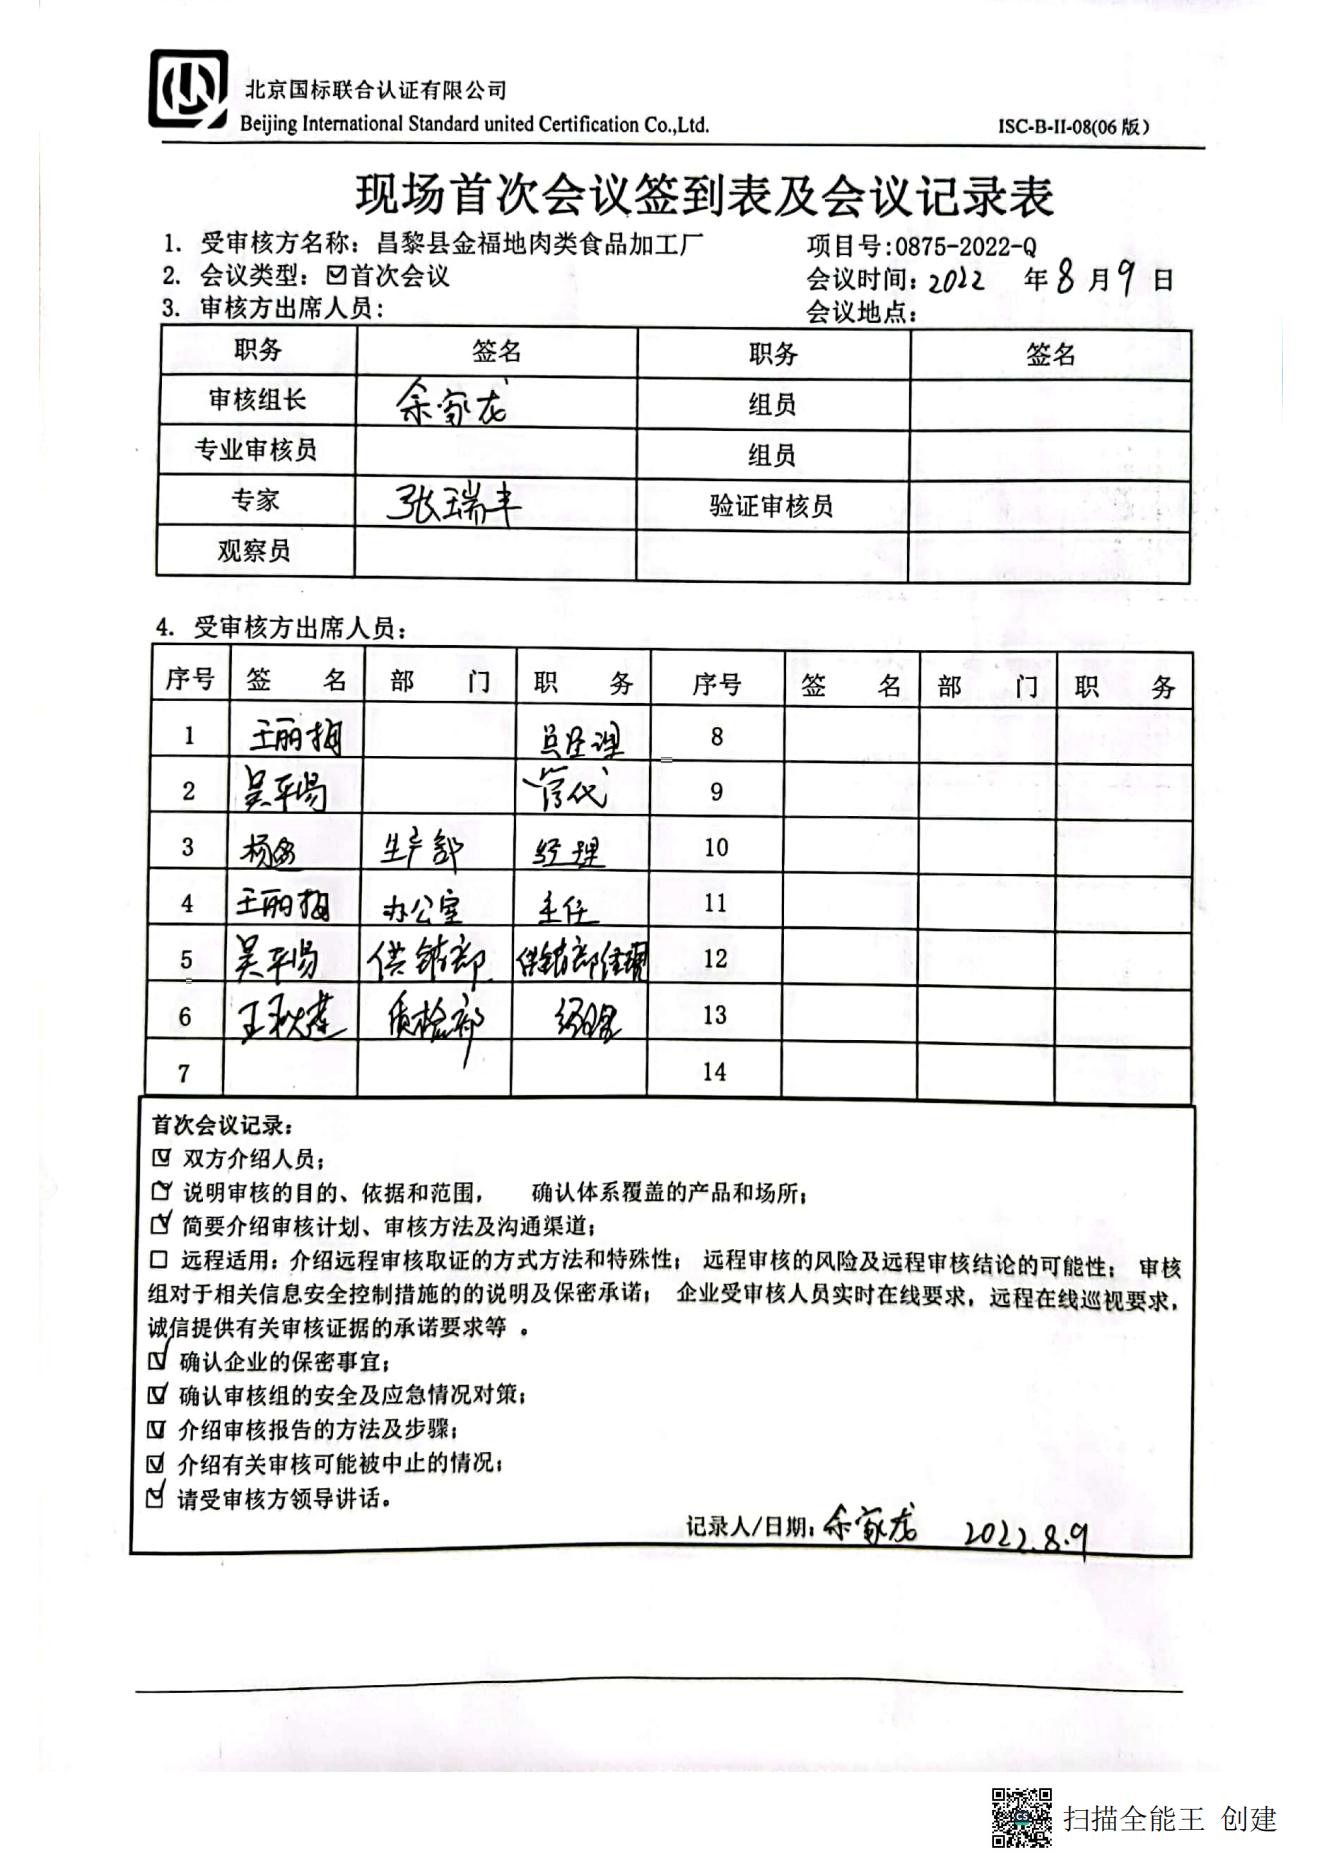 北京国标联合认证有限公司
Beijing International Standard united Certification Co.,Ltd.
ISC-B-II-08(06版)
现场首次会议签到表及会议记录表
1. 受审核方名称：昌黎县金福地肉类食品加工厂 项目号:0875-2022-Q
2. 会议类型：☑首次会议 会议时间：2022 年 8 月 9 日
3. 审核方出席人员： 会议地点：
职务 签名 职务 签名
审核组长 余家龙 组员
专业审核员 组员
专家 张瑞丰 验证审核员
观察员
4. 受审核方出席人员：
序号 签 名 部 门 职 务 序号 签 名 部 门 职 务
1 王丽梅 总经理 8
2 吴平易 管代 9
3 杨 生产部 经理 10
4 王丽梅 办公室 主任 11
5 吴平易 供销部 供销部经理 12
6 王秋莲 质检部 经理 13
7 14
首次会议记录：
☑ 双方介绍人员；
☑ 说明审核的目的、依据和范围， 确认体系覆盖的产品和场所；
☑ 简要介绍审核计划、审核方法及沟通渠道；
☐ 远程适用：介绍远程审核取证的方式方法和特殊性； 远程审核的风险及远程审核结论的可能性； 审核
组对于相关信息安全控制措施的的说明及保密承诺； 企业受审核人员实时在线要求，远程在线巡视要求，
诚信提供有关审核证据的承诺要求等 。
☑ 确认企业的保密事宜；
☑ 确认审核组的安全及应急情况对策；
☑ 介绍审核报告的方法及步骤；
☑ 介绍有关审核可能被中止的情况；
☑ 请受审核方领导讲话。
记录人/日期：余家龙 2022.8.9
扫描全能王 创建